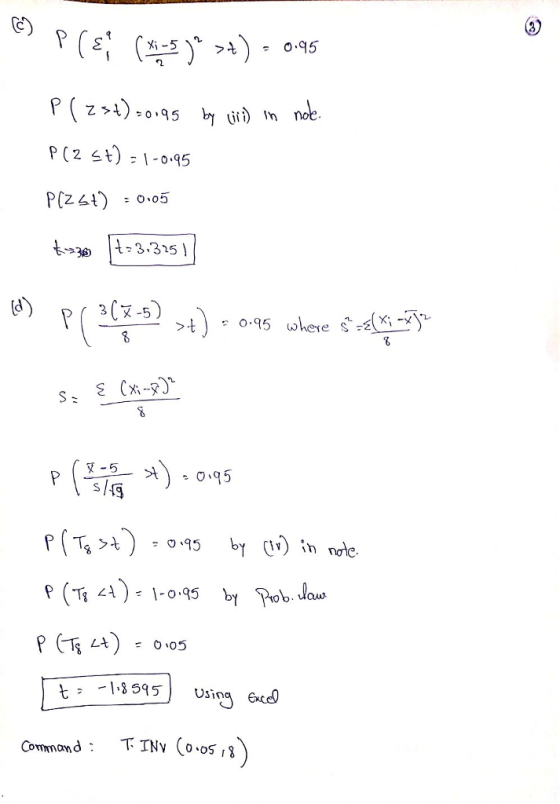 (c) P ( Σ₁⁹ ( (xi-5)/2 )² >t) = 0.95
(3)
P ( Z >t) = 0.95 by (iii) in note.
P(Z ≤t) = 1-0.95
P(Z ≤t) = 0.05
t=3.3251
(d) P ( 3(x̄-5)/8 >t) = 0.95 where s² = Σ(xi -x̄)²/8
S = Σ (xi-x̄)²/8
P ( (x̄-5)/(s/√9) >t) = 0.95
P(T₈ >t) = 0.95 by (iv) in note.
P (T₈ <t) = 1-0.95 by Prob. law
P (T₈ <t) = 0.05
t = -1.8595 Using Excel
Command : T. INV (0.05,8)